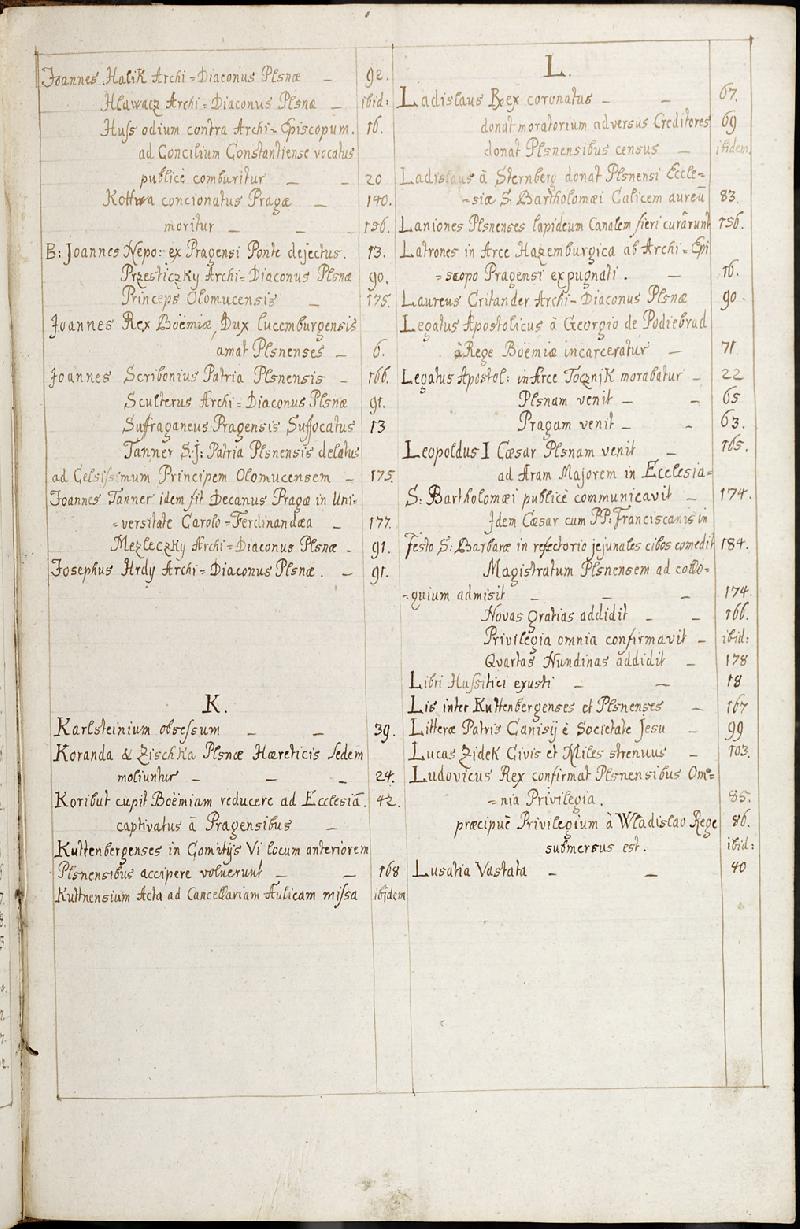 Joannes Halik Archi=Diaconus Plsnæ – 92.
Hlawacz Archi=Diaconus Plsnæ – ibid:
Huss odium contra Archi=Episcopum. 16.
ad Concilium Constantiense vocatus
publicè comburitur – – 20
Kottwa concionatus Pragæ – 140.
moritur – – 156.
B: Joannes Nepo: ex Pragensi Ponte dejectus. 13.
Przesticzky Archi=Diaconus Plsnæ 90.
Princeps Olomucensis – 175.
Joannes Rex Boëmiæ, Dux Lucemburgensis
amat Plsnenses – 6.
Joannes Scribonius Patria Plsnensis – 166.
Scultetus Archi=Diaconus Plsnæ 91.
Sufraganeus Pragensis Suffocatus 13
Tanner S:J: Patria Plsnensis delatus
ad Celsissimum Principem Olomucensem – 175.
Joannes Tanner idem fit Decanus Pragæ in Uni-
=versitate Carolo=Ferdinandæa – 177.
Mezleczky Archi=Diaconus Plsnæ . 91.
Josephus Hrdy Archi=Diaconus Plsnæ . – 91.
K.
Karlsteinium obsessum – – 39.
Koranda & Zischka Plsnæ Hæreticis Sedem
moliuntur – – – 24.
Koribut cupit Boëmiam reducere ad Ecclesiã. 42.
captivatus à Pragensibus –
Kuttenbergenses in Comitijs Vi locum anteriorem
Plsnensibus accipere voluerunt – – 168
Kuttnensium Acta ad Cancellariam Aulicam missa ibidem
L.
Ladislaus Rex coronatus – – 67.
donat moratorium adversus Creditores 69
donat Plsnensibus census – ibidem
Ladislaus à Sternberg donat Plsnensi Eccle=
=siæ S. Bartholomæi Calicem aureũ 83.
Laniones Plsnenses lapideum Canalem fieri curârunt 156.
Latrones in Arce Hazemburgica ab Archi=Epi
=scopo Pragensi expugnati . – 16.
Laureus Critander Archi=Diaconus Plsnæ 90.
Legatus Apostolicus à Georgio de Podiebrad
à Rege Boëmiæ incarceratur – 71
Legatus Apostol: in Arce Toczník morabatur – 22
Plsnam venit – – 65
Pragam venit – – 63.
Leopoldus I Cæsar Plsnam venit – 165.
ad Aram Majorem in Ecclesia=
S: Bartholomæi publicè communicavit – 174.
Idem Cæsar cum PP: Franciscanis in
Festo S: Barbaræ in refectorio jejunales cibos comedit 184.
Magistratum Plsnensem ad collo-
=quium admisit – – – 174
Novas gratias addidit – – 166.
Privilegia omnia confirmavit – ibid:
Quartas Nundinas addidit – 178
Libri Hussitici exusti – – 18
Lis inter Kuttenbergenses et Plsnenses – 167
Litteræ Patris Canisij è Societate Jesu – 99
Lucas Zidek Civis et Miles strenuus – 103.
Ludovicus Rex confirmat Plsnensibus Om=
=nia Privilegia. 85.
præcipuè Privilegium à Wladislao Rege 86.
submersus est. ibid:
Lusatia Vastata – – 40